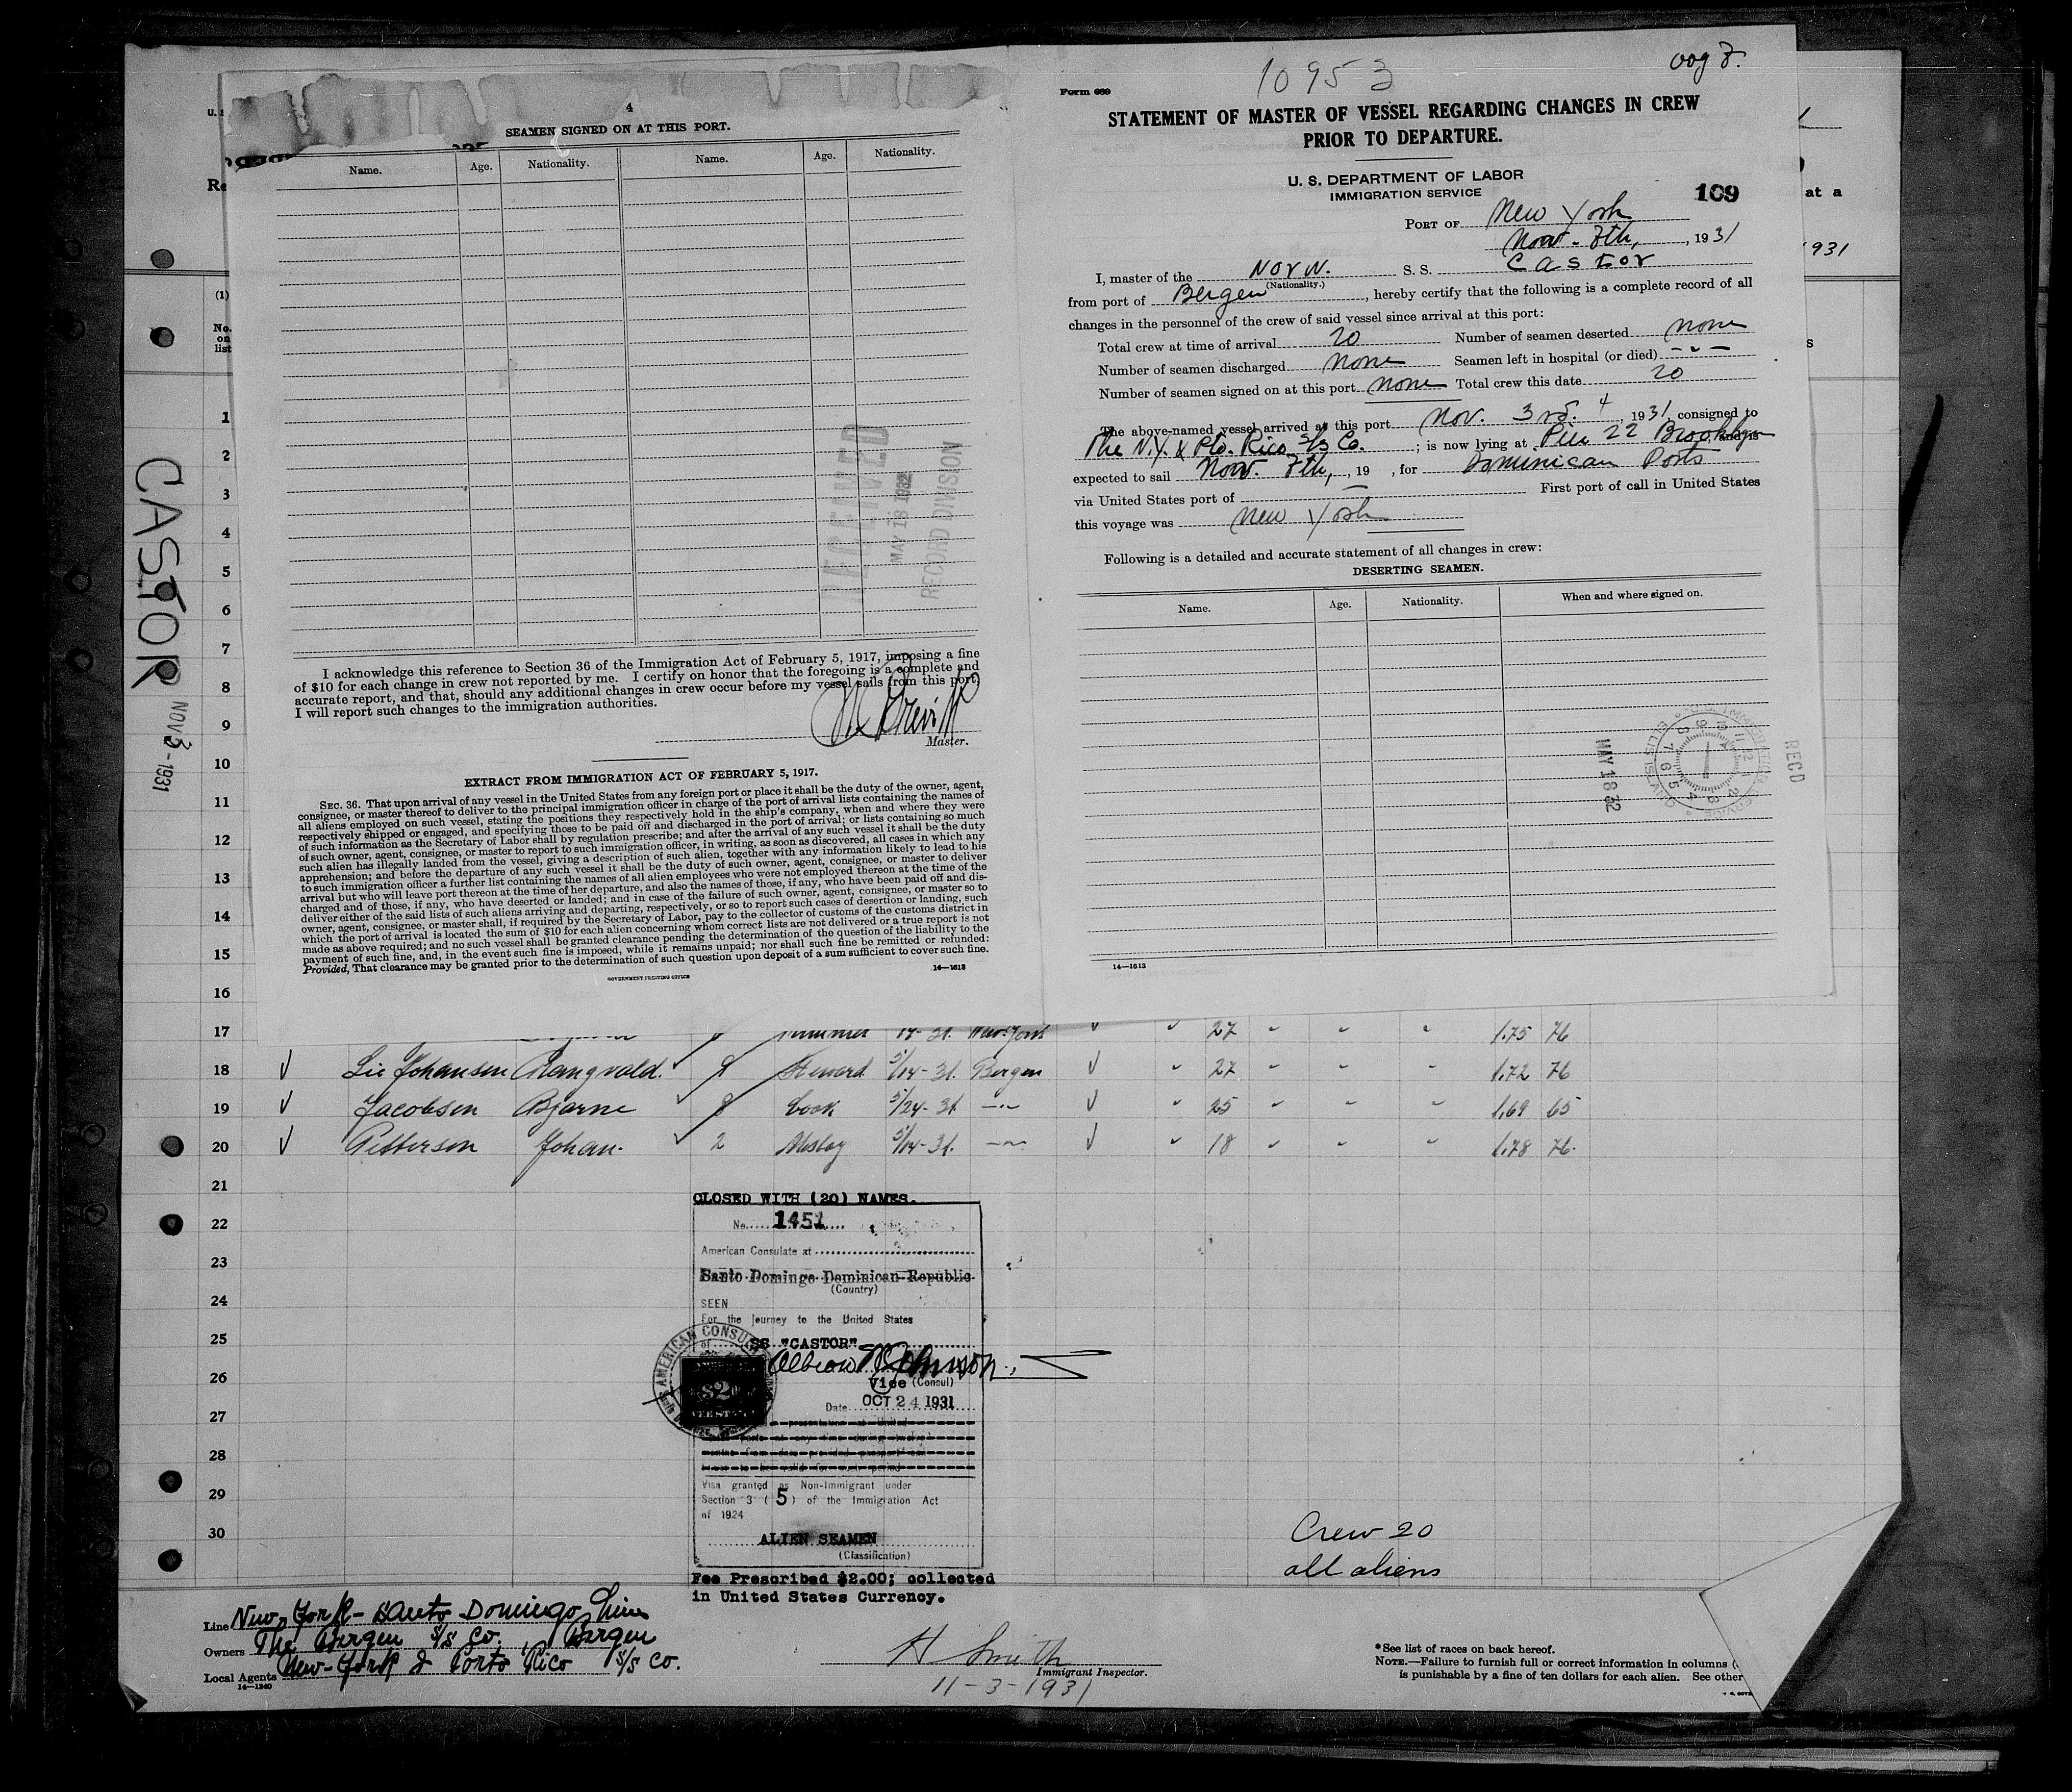 4
SEAMEN SIGNED ON AT THIS PORT.
Name. Age. Nationality. Name. Age. Nationality.
I acknowledge this reference to Section 36 of the Immigration Act of February 5, 1917, imposing a fine
of $10 for each change in crew not reported by me. I certify on honor that the foregoing is a complete and
accurate report, and that, should any additional changes in crew occur before my vessel sails from this port,
I will report such changes to the immigration authorities.
Master.
EXTRACT FROM IMMIGRATION ACT OF FEBRUARY 5, 1917.
SEC. 36. That upon arrival of any vessel in the United States from any foreign port or place it shall be the duty of the owner, agent,
consignee, or master thereof to deliver to the principal immigration officer in charge of the port of arrival lists containing the names of
all aliens employed on such vessel, stating the positions they respectively hold in the ship's company, when and where they were
respectively shipped or engaged, and specifying those to be paid off and discharged in the port of arrival; or lists containing so much
of such information as the Secretary of Labor shall by regulation prescribe; and after the arrival of any such vessel it shall be the duty
of such owner, agent, consignee, or master to report to such immigration officer, in writing, as soon as discovered, all cases in which any
such alien has illegally landed from the vessel, giving a description of such alien, together with any information likely to lead to his
apprehension; and before the departure of any such vessel it shall be the duty of such owner, agent, consignee, or master to deliver
to such immigration officer a further list containing the names of all alien employees who were not employed thereon at the time of the
arrival but who will leave port thereon at the time of her departure, and also the names of those, if any, who have been paid off and dis-
charged and of those, if any, who have deserted or landed; and in case of the failure of such owner, agent, consignee, or master so to
deliver either of the said lists of such aliens arriving and departing, respectively, or so to report such cases of desertion or landing, such
owner, agent, consignee, or master shall, if required by the Secretary of Labor, pay to the collector of customs of the customs district in
which the port of arrival is located the sum of $10 for each alien concerning whom correct lists are not delivered or a true report is not
made as above required; and no such vessel shall be granted clearance pending the determination of the question of the liability to the
payment of such fine, and, in the event such fine is imposed, while it remains unpaid; nor shall such fine be remitted or refunded:
Provided, That clearance may be granted prior to the determination of such question upon deposit of a sum sufficient to cover such fine.
GOVERNMENT PRINTING OFFICE
14—1613
RECEIVED
MAY 18 1932
RECORD DIVISION
10953
Form 689
STATEMENT OF MASTER OF VESSEL REGARDING CHANGES IN CREW
PRIOR TO DEPARTURE.
U. S. DEPARTMENT OF LABOR
IMMIGRATION SERVICE
109
PORT OF New York
Nov. 7th, 1931
I, master of the Norw. S. S. Castor
(Nationality.)
from port of Bergen, hereby certify that the following is a complete record of all
changes in the personnel of the crew of said vessel since arrival at this port:
Total crew at time of arrival 20 Number of seamen deserted none
Number of seamen discharged none Seamen left in hospital (or died) -"-
Number of seamen signed on at this port none Total crew this date 20
The above-named vessel arrived at this port Nov. 3rd. 1931, consigned to
The N.Y. & Pto. Rico S/S Co.; is now lying at Pier 22 Brooklyn and is
expected to sail Nov. 7th, 19 , for Dominican Ports
via United States port of — First port of call in United States
this voyage was New York
Following is a detailed and accurate statement of all changes in crew:
DESERTING SEAMEN.
Name. Age. Nationality. When and where signed on.
MAY 18 32
REC'D
14—1613
U. S
Re
at a
1931
(1)
No.
on
list
CASTOR NOV 3 - 1931
1
2
3
4
5
6
7
8
9
10
11
12
13
14
15
16
17 14-31. New York 27 1.75 76
18 Lie Johansen Rangvald. 9 Steward 5/14-31. Bergen 27 1.72 76
19 Jacobsen Bjarne 8 Cook 5/24-31 -"- 25 1.69 65
20 Petterson Johan. 2 Messboy 5/14-31. -"- 18 1.78 76.
21
22
23
24
25
26
27
28
29
30
CLOSED WITH (20) NAMES.
No. 1451
American Consulate at
Santo Domingo Dominican Republic
(Country)
SEEN
For the journey to the United States
of SS "CASTOR"
AMERICAN CONSU
$2
Vice (Consul)
Date OCT 24 1931
Visa granted as Non-Immigrant under
Section 3 (5) of the Immigration Act
of 1924
ALIEN SEAMEN
(Classification)
Fee Prescribed $2.00; collected
in United States Currency.
Crew 20
all aliens
Line New-York - Santo Domingo Line
Owners The Bergen S/S Co. Bergen
Local Agents New-York & Porto Rico S/S Co.
14—1240
H Smith
Immigrant Inspector.
11-3-1931
*See list of races on back hereof.
NOTE.—Failure to furnish full or correct information in columns (
is punishable by a fine of ten dollars for each alien. See other